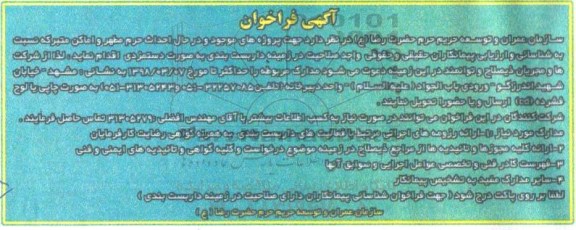 آگهی فراخوان
سازمان عمران و توسعه حریم حرم حضرت رضا (ع) در نظر دارد جهت پروژه های موجود و در حال احداث حرم مطهر و اماکن متبرکه نسبت
به شناسائی و ارزیابی پیمانکاران حقیقی و حقوقی واجد صلاحیت در زمینه داربست بندی به صورت دستمزدی اقدام نماید . لذا از شرکت
ها و مجریان ذیصلاح و توانمند در این زمینه دعوت می شود مدارک مربوطه را حداکثر تا مورخ ۱۳۹۸/۰۳/۰۷ به نشانی : مشهد - خیابان
شهید اندرزگو - ورودی باب الجواد (علیه السلام) - واحد دبیرخانه (تلفن به صورت چاپی یا لوح
فشرده (cd) ارسال و یا حضورا تحویل نمایند .
شرکت کنندگان در این فراخوان می توانند در صورت نیاز به کسب اطلاعات بیشتر با آقای مهندس افضلی تماس حاصل فرمایند .
مدارک مورد نیاز : ۱- ارائه رزومه های اجرائی مرتبط با فعالیت های داربست بندی به همراه گواهی رضایت کارفرمایان
۲- ارائه کلیه مجوزها و تائیدیه ها از مراجع ذیصلاح در زمینه موضوع درخواست و کلیه گواهی و تائیدیه های ایمنی و فنی
۳- فهرست کادر فنی و تخصصی عوامل اجرایی و سوابق آنها
۴- سایر مدارک مفید به تشخیص پیمانکار
لطفا بر روی پاکت درج شود ( جهت فراخوان شناسائی پیمانکاران دارای صلاحیت در زمینه داربست بندی )
سازمان عمران و توسعه حریم حرم حضرت رضا (ع)